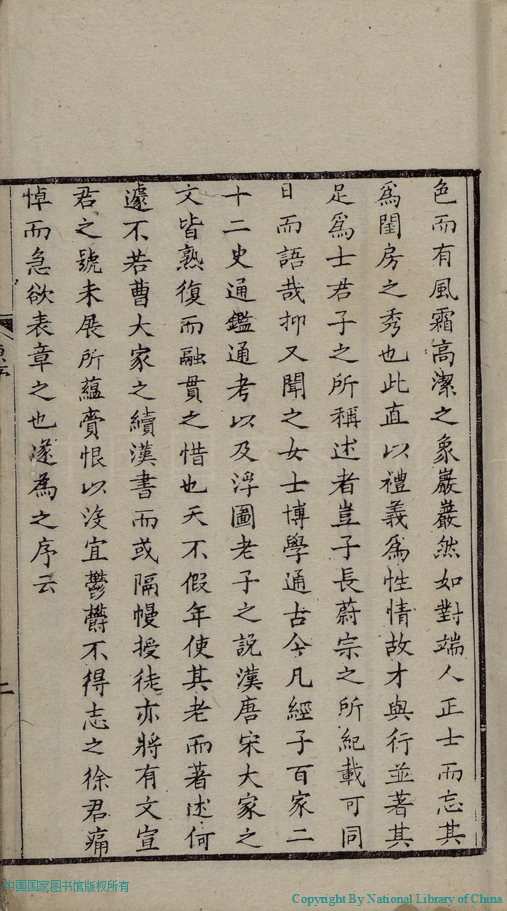 色而有風霜高潔之象巖巖然如對端人正士而忘其
爲閨房之秀也此直以禮義爲性情故才與行並著其
足爲士君子之所稱述者豈子長蔚宗之所紀載可同
日而語哉抑又聞之女士博學通古今凡經子百家二
十二史通鑑通考以及浮圖老子之說漢唐宋大家之
文皆熟復而融貫之惜也天不假年使其老而著述何
遽不若曹大家之續漢書而或隔幔授徒亦將有文宣
君之號未展所蘊賫恨以沒宜鬱欝不得志之徐君痛
悼而急欲表章之也遂為之序云
二
中国国家图书馆版权所有
Copyright By National Library of China